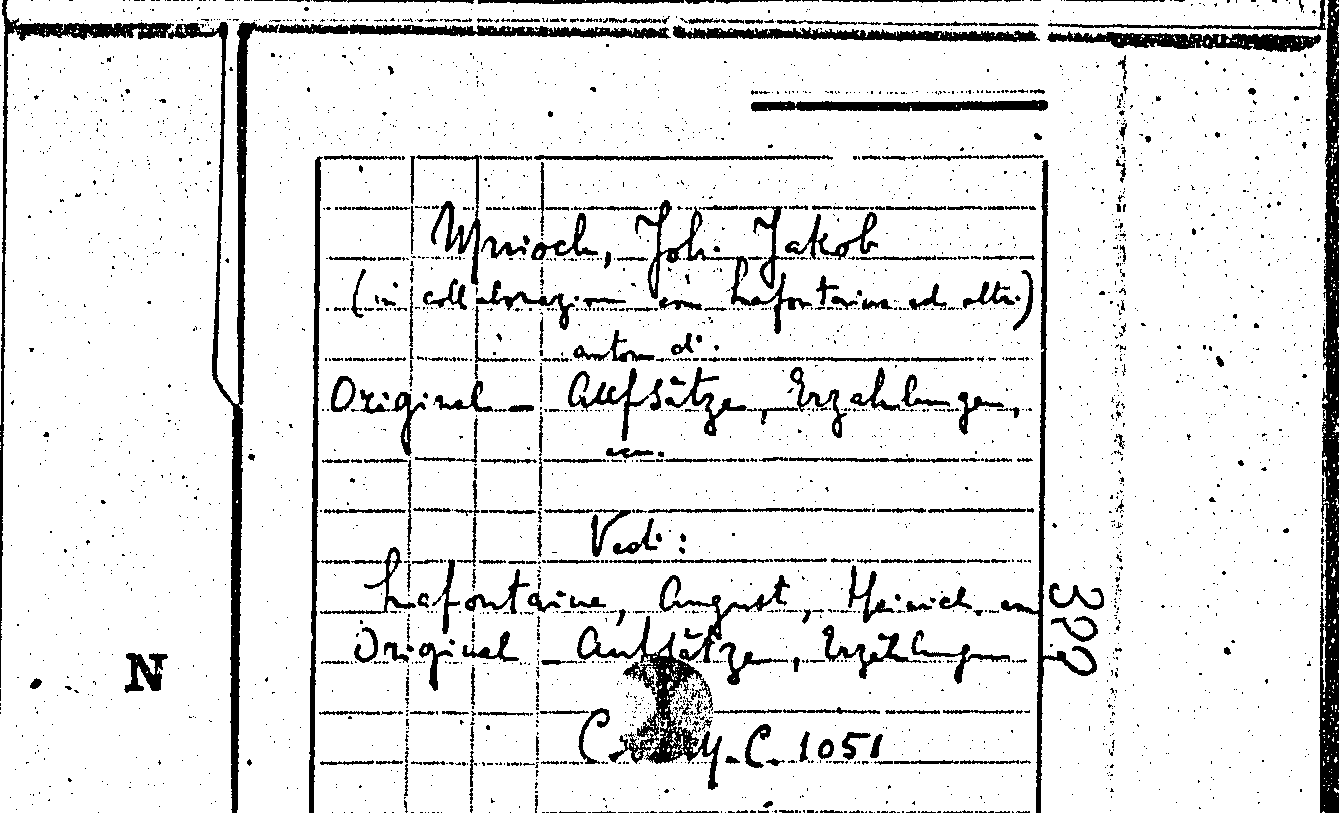 Mnioch, Joh. Jakob
(in collaborazione con Lafontaine ed altri)
autore di:
Original - Aufsätze, Erzahlungen,
ecc.
Vedi:
Lafontaine, August, Heinrich
Original - Aufsätze, Erzählungen
N
C. 1051